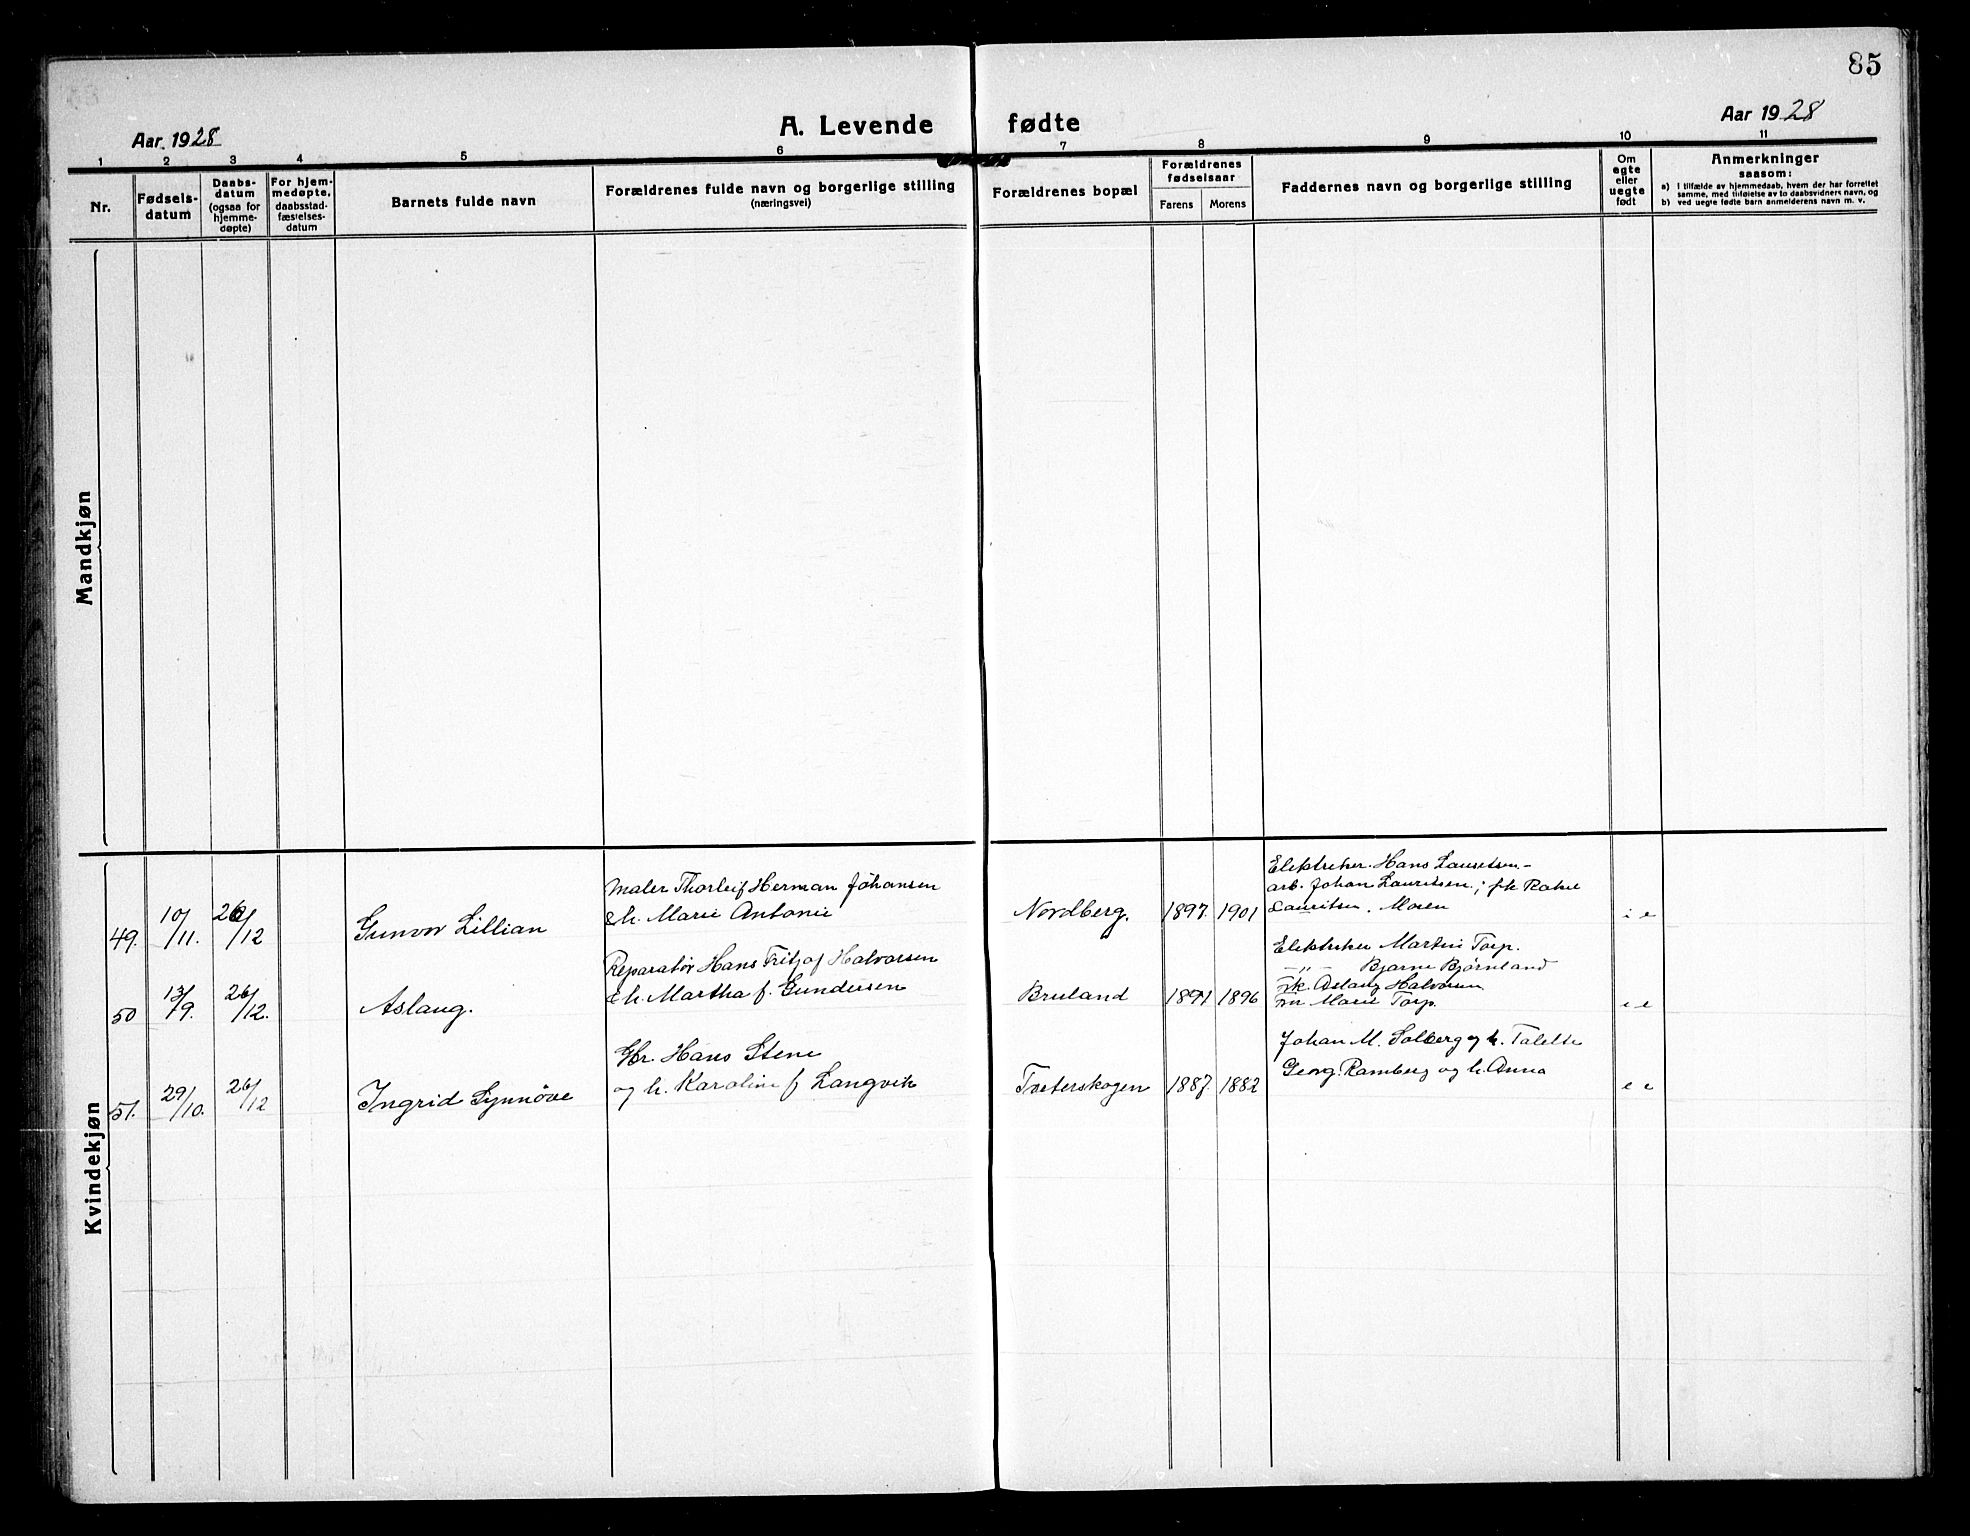 85
Aar 1928
A. Levende fødte
Aar 1928
1 2 3 4 5 6 7 8 9 10 11
Nr.
Fødsels-
datum
Daabs-
datum
(ogsaa for
hjemme-
døpte)
For hjem-
medøpte,
daabsstad-
fæstelses-
datum
Barnets fulde navn
Forældrenes fulde navn og borgerlige stilling
(næringsvei)
Forældrenes bopæl
Forældrenes
fødselsaar
Farens Morens
Faddernes navn og borgerlige stilling
Om
egte
eller
uegte
født
Anmerkninger
saasom:
a) I tilfælde av hjemmedaab, hvem der har forrettet
samme, med tilføielse av to daabsvidners navn, og
b) ved uegte fødte barn anmelderens navn m. v.
Mandkjøn
Kvindekjøn
49. 10/11. 26/12 Gunvor Lillian
Maler Thorleif Herman Johansen
& h. Marie Antonie
Nordberg. 1897. 1901
Elektriker Hans Lauritsen -
arb. Johan Lauritsen; frk Rakel
Lauritsen. Moren
i e
50 13/9. 26/12. Aslaug.
Reparatør Hans Fritjof Halvorsen
& h. Martha f. Gundersen
Bruland 1891 1896
Elektriker Martin Torp.
-"- Bjarne Bjørnland
frk. Aslaug Halvorsen
fru Marie Torp.
i e
51. 29/10. 26/12 Ingrid Synnöve
Gbr. Hans Stene
og h. Karoline f Langvik
Tveterskogen 1887. 1882
Johan M. Solberg og h. Talette
Georg Ramberg og h. Anna
e e